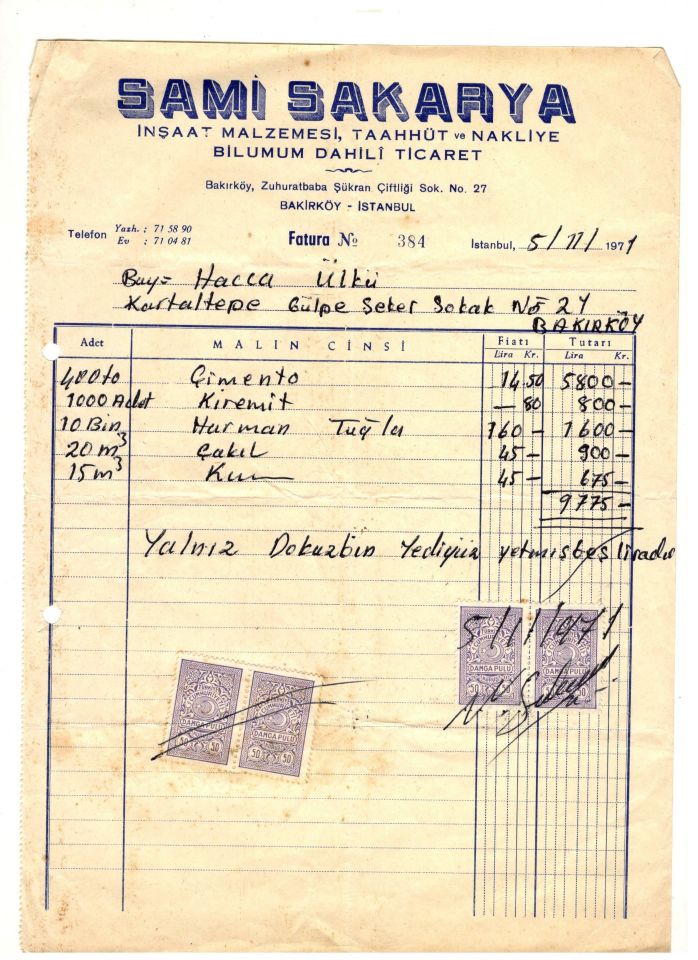 SAMİ SAKARYA
İNŞAAT MALZEMESİ, TAAHHÜT ve NAKLİYE
BİLUMUM DAHİLÎ TİCARET
Bakırköy, Zuhuratbaba Şükran Çiftliği Sok. No. 27
BAKIRKÖY - İSTANBUL
Telefon Yazh. : 71 58 90
Ev : 71 04 81
Fatura № 384 İstanbul, 5/11/1971
Bay= Hacca Ülkü
Kartaltepe Gülpe Şeker Sokak No 24
BAKIRKÖY
Adet MALIN CİNSİ Fiatı Tutarı
Lira Kr. Lira Kr.
400 to Çimento 14 50 5800 —
1000 Adet Kiremit — 80 800 —
10 Bin Harman Tuğla 160 — 1600 —
20 m3 Çakıl 45 — 900 —
15 m3 Kum 45 — 675 —
9775 —
Yalnız Dokuzbin Yediyüz yetmişbeş liradır
5/11/1971
DAMGA PULU DAMGA PULU
50 50 50
DAMGA PULU DAMGA PULU
50 50 50 50